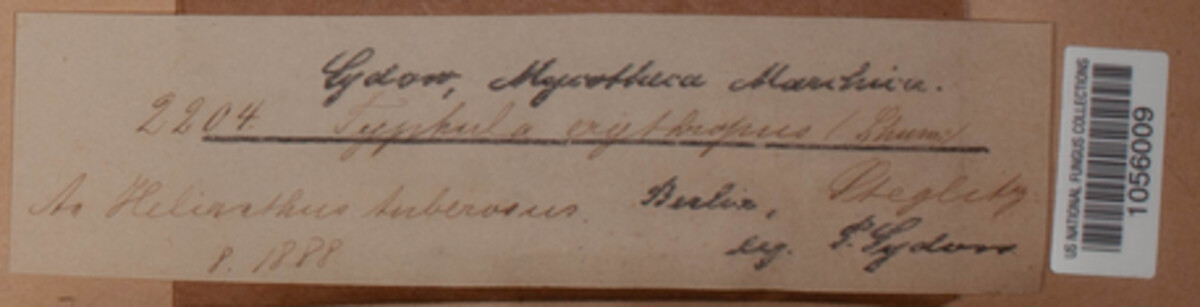 Sydow, Mycotheca Marchica.
2204 Typhula erythropus (Schum.)
An Helianthus tuberosus. Berlin, Steglitz
8. 1888 leg. P. Sydow
US NATIONAL FUNGUS COLLECTIONS
1056009